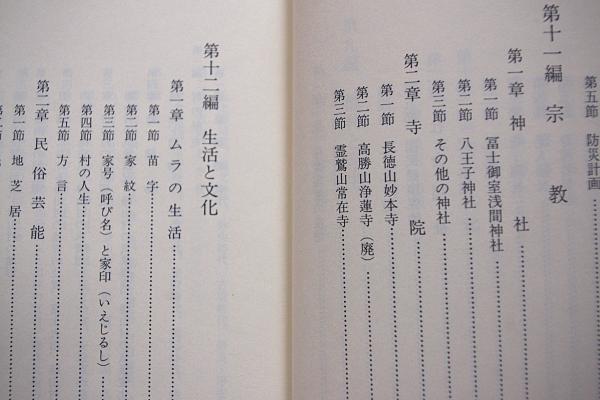 第五節 防災計画
第十一編 宗教
第一章 神社
第一節 冨士御室浅間神社
第二節 八王子神社
第三節 その他の神社
第二章 寺院
第一節 長徳山妙本寺
第二節 高勝山浄蓮寺(廃)
第三節 霊鷲山常在寺
第十二編 生活と文化
第一章 ムラの生活
第一節 苗字
第二節 家紋
第三節 家号(呼び名)と家印(いえじるし)
第四節 村の人生
第五節 方言
第二章 民俗芸能
第一節 地芝居